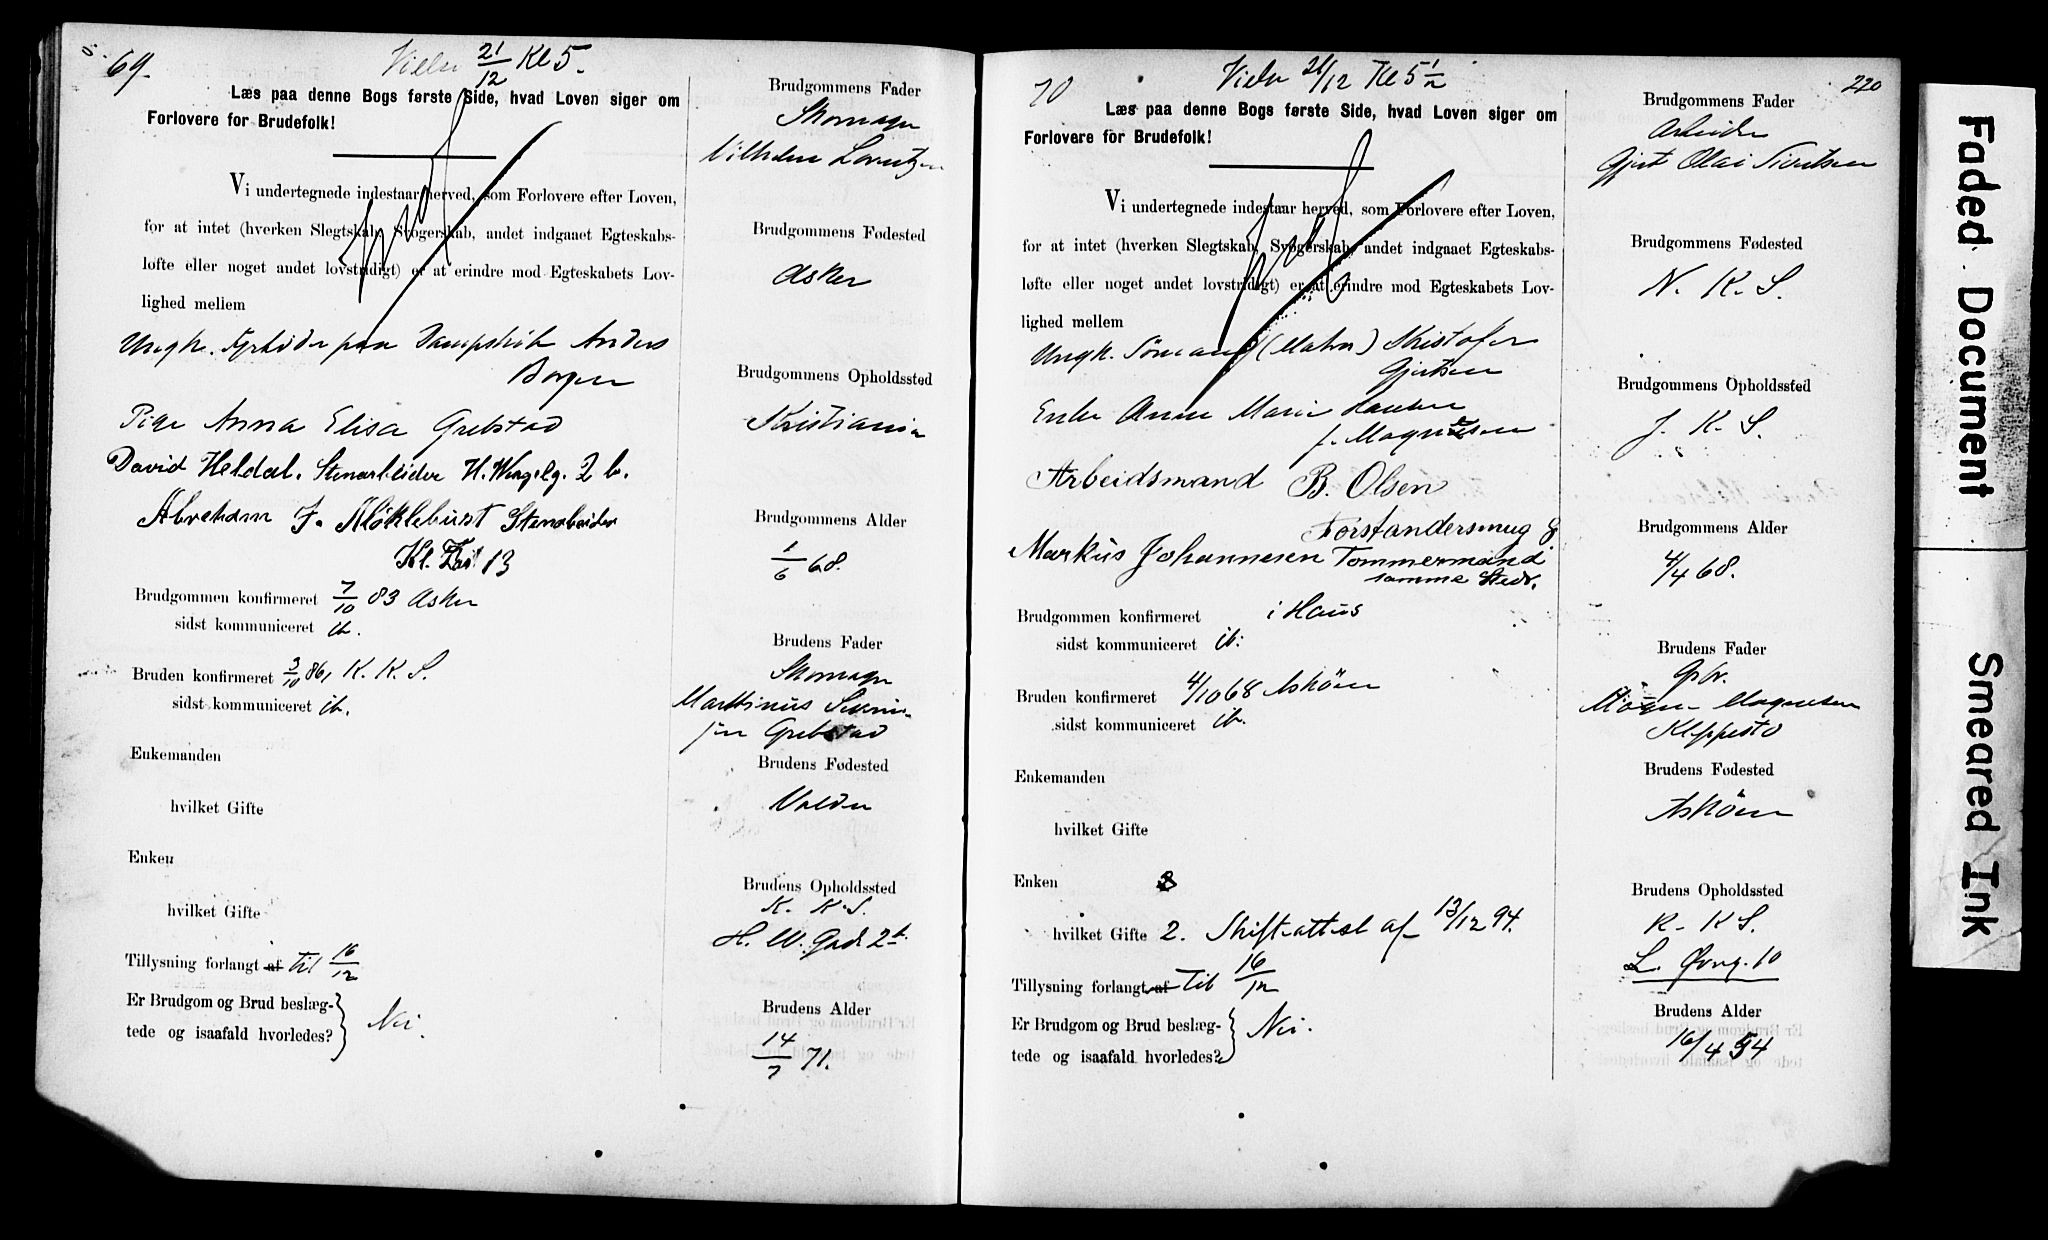 69.
Vielse 21/12 Kl 5.
Læs paa denne Bogs første Side, hvad Loven siger om
Forlovere for Brudefolk!
Vi undertegnede indestaar herved, som Forlovere efter Loven,
for at intet (hverken Slegtskab, Svogerskab, andet indgaaet Egteskabs-
løfte eller noget andet lovstridigt) er at erindre mod Egteskabets Lov-
lighed mellem
Ungk. Fyrbøder paa Dampskib Anders
Borgen
Pige Anna Elisa Grebstad
David Heldal. Stenarbeider H. Wergelg. 2 b.
Abraham J. Kløklebust Stenarbeider
Kl. 13
Brudgommen konfirmeret 7/10 83 Asker
sidst kommuniceret ib.
Bruden konfirmeret 3/10 86, K. K. S.
sidst kommuniceret ib.
Enkemanden
hvilket Gifte
Enken
hvilket Gifte
Tillysning forlangt af til 16/12
Er Brudgom og Brud beslæg-
tede og isaafald hvorledes? Nei.
Brudgommens Fader
Skomager
Vilhelm Lorentzen
Brudgommens Fødested
Asker
Brudgommens Opholdssted
Kristiania
Brudgommens Alder
1/6 68.
Brudens Fader
Skomager
Marthinus
Grebstad
Brudens Fødested
Volden
Brudens Opholdssted
K. K. S.
H. W. Gade 2 b.
Brudens Alder
14/7 71.
70
Vielse 21/12 Kl 5 1/2
220
Læs paa denne Bogs første Side, hvad Loven siger om
Forlovere for Brudefolk!
Vi undertegnede indestaar herved, som Forlovere efter Loven,
for at intet (hverken Slegtskab, Svogerskab, andet indgaaet Egteskabs-
løfte eller noget andet lovstridigt) er at erindre mod Egteskabets Lov-
lighed mellem
Ungk. Sømand (Matros) Kristofer
Gjertsen
Enke Anne Marie Hansen
f. Magnesen
Arbeidsmand B. Olsen
Forstandersmug 8
Markus Johannesen Tømmermand
samme Sted.
Brudgommen konfirmeret i Haus
sidst kommuniceret ib.
Bruden konfirmeret 4/10 68 Askøen
sidst kommuniceret ib.
Enkemanden
hvilket Gifte
Enken
hvilket Gifte 2. Skifteattest af 13/12 94.
Tillysning forlangt af til 16/12
Er Brudgom og Brud beslæg-
tede og isaafald hvorledes? Nei.
Brudgommens Fader
Arbeider
Gjert Olai Sivertsen
Brudgommens Fødested
N. K. S.
Brudgommens Opholdssted
J. K. S.
Brudgommens Alder
4/4 68.
Brudens Fader
Gbr.
Mogn Magnesen
Kleppestø
Brudens Fødested
Askøen
Brudens Opholdssted
K. K S.
L. Øvreg. 10
Brudens Alder
16/4 54
Faded Document
Smeared Ink